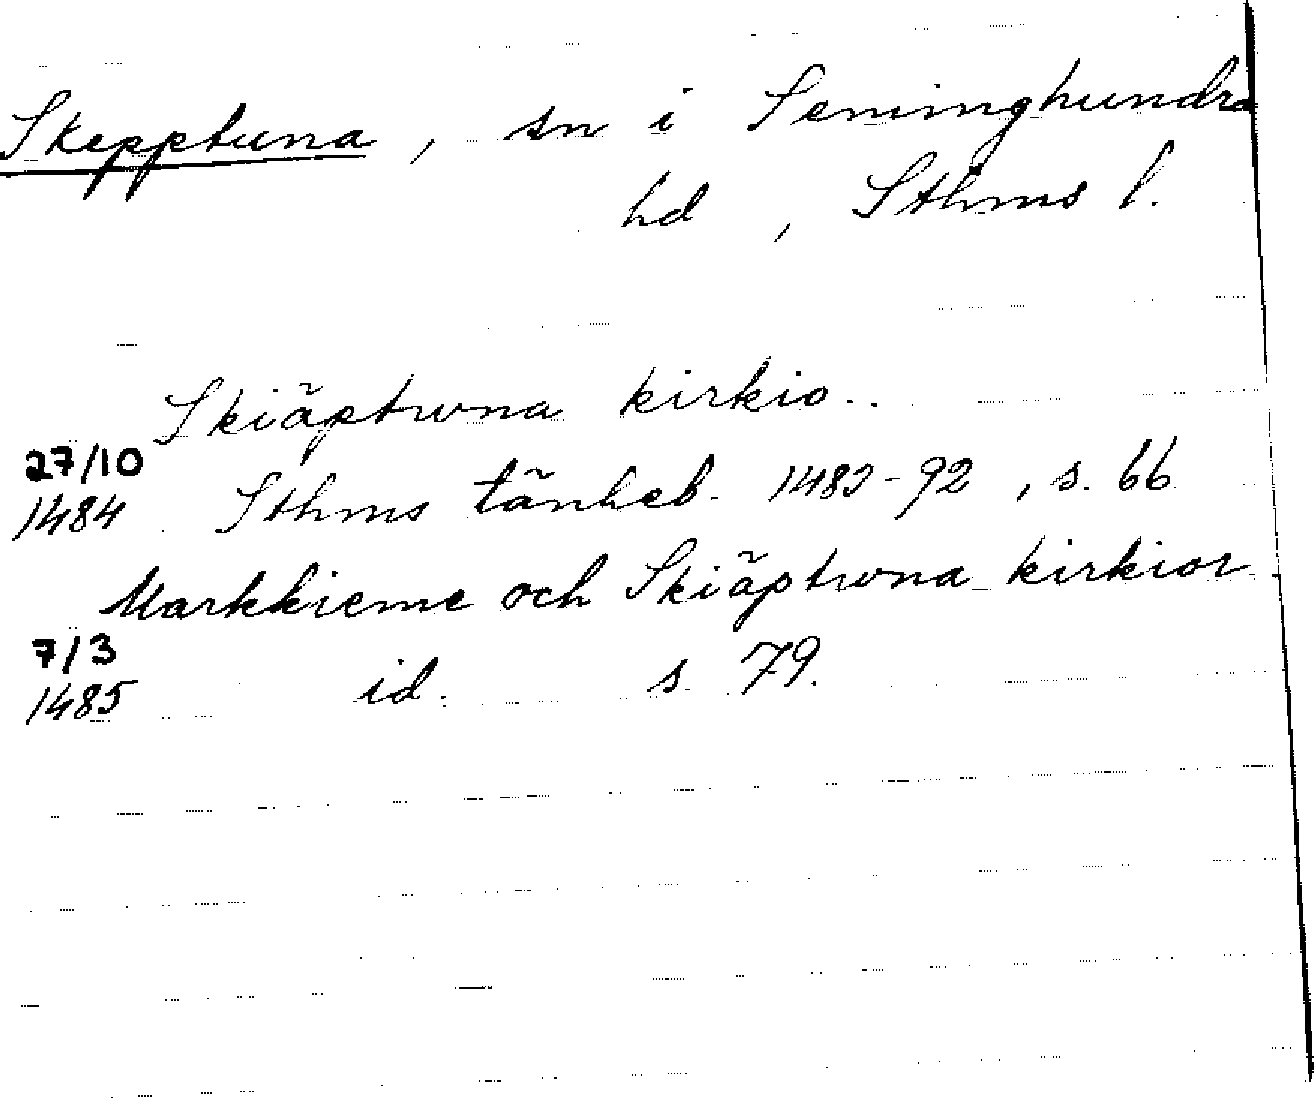 Skepptuna, sn i Seminghundra
hd, Sthms l.
Skiäptwna kirkio..
27/10
1484 Sthms tänkeb. 1483-92, s. 66
Markkieme och Skiäptwna kirkior
7/3
1485 id. s. 79.